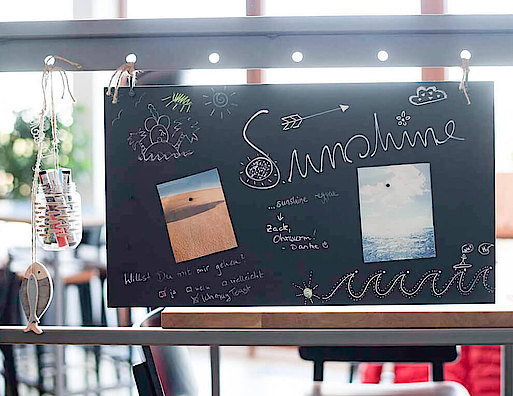 Sunshine
...sunshine reggae
Zack,
Ohrwurm!
- Danke
Willst Du mit mir gehen?
ja nein vielleicht